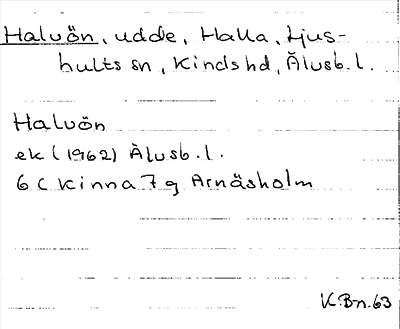 Halvön, udde, Halla, Ljus-
hults sn, Kinds hd, Älvsb. l.
Halvön
ek (1962) Älvsb. l.
6 C Kinna 7 g Arnäsholm
K.Bn. 63